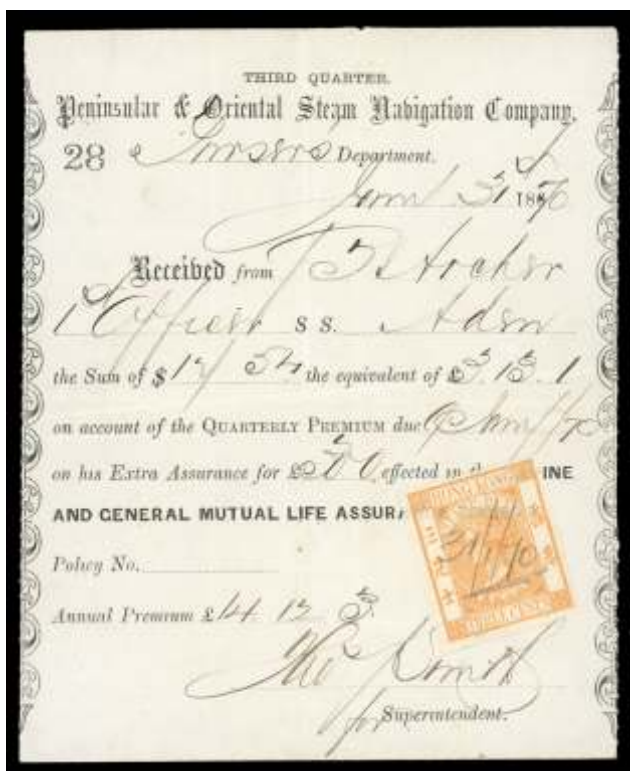 THIRD QUARTER.
Peninsular & Oriental Steam Navigation Company.
28 Pursers Department.
Jany 31 1870
Received from Archer
1 Officer S S. Aden
the Sum of $ the equivalent of £3.13.1
on account of the QUARTERLY PREMIUM due
on his Extra Assurance for £ effected in INE
AND GENERAL MUTUAL LIFE ASSUR
Policy No.
Annual Premium £14 12 3
HONG KONG
31/1/70
THREE CENTS
Smith
for Superintendent.